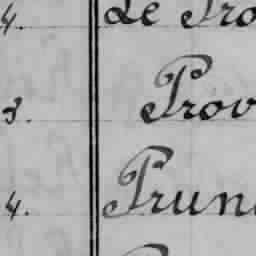 4. Le Pro
3. Prov
4. Prun